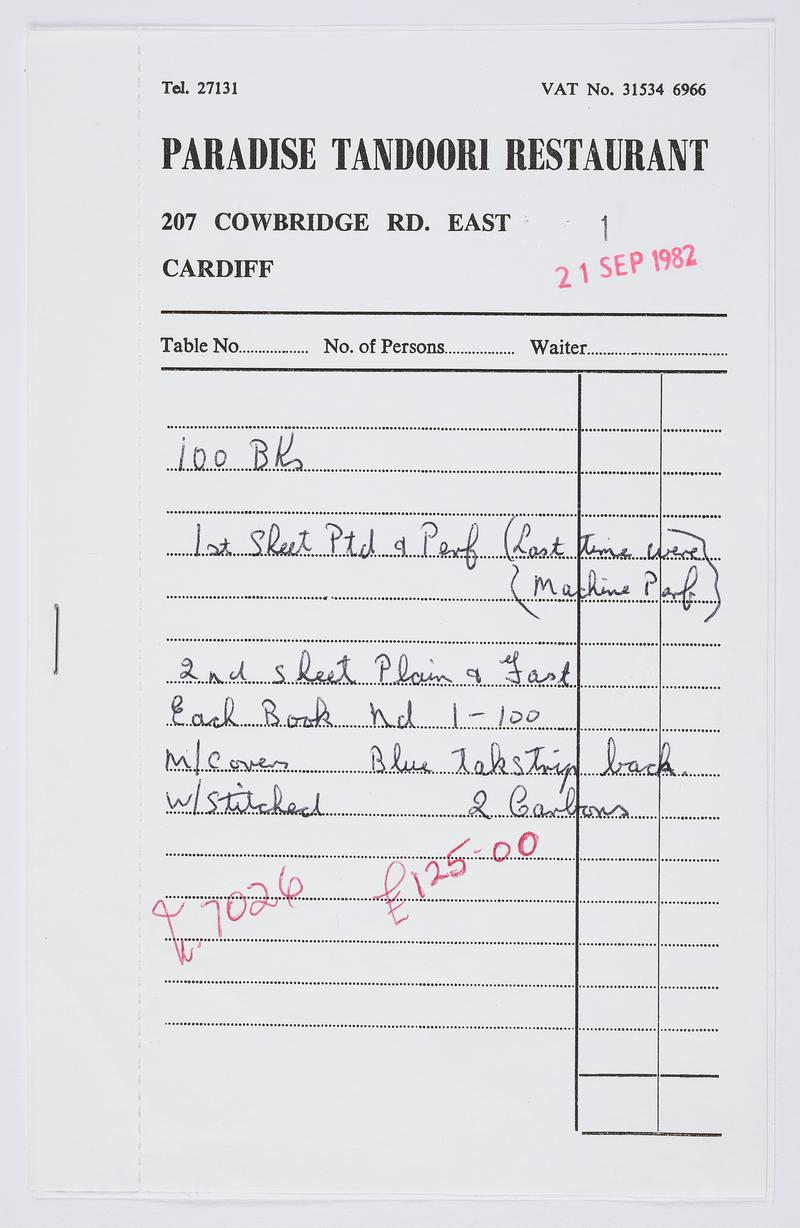 Tel. 27131 VAT No. 31534 6966
PARADISE TANDOORI RESTAURANT
207 COWBRIDGE RD. EAST 1
CARDIFF 21 SEP 1982
Table No. No. of Persons Waiter
100 BKs
1st Sheet Ptd & Perf (Last time were)
(Machine Perf)
2nd sheet Plain & Fast
Each Book Nd 1-100
M/Covers Blue Takstrip back.
W/Stitched 2 Carbons
£125-00
7026